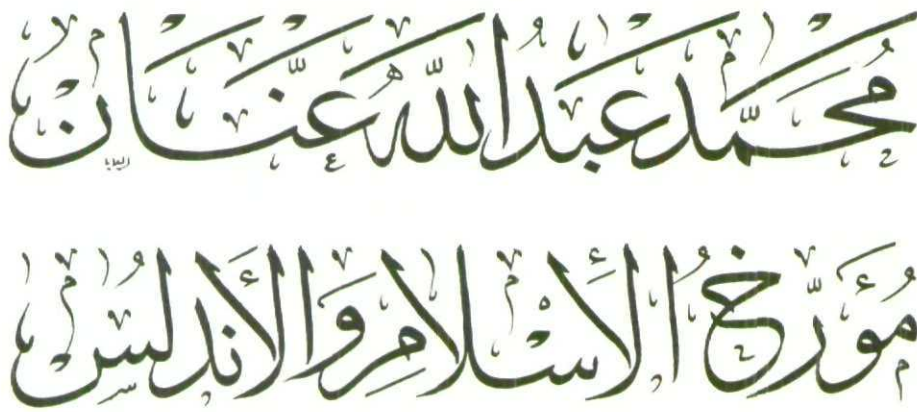 مُحَمَّد عَبْدُ اللّٰه عَنَّان
مُؤَرِّخُ الْإِسْلَامِ وَالْأَنْدَلُس